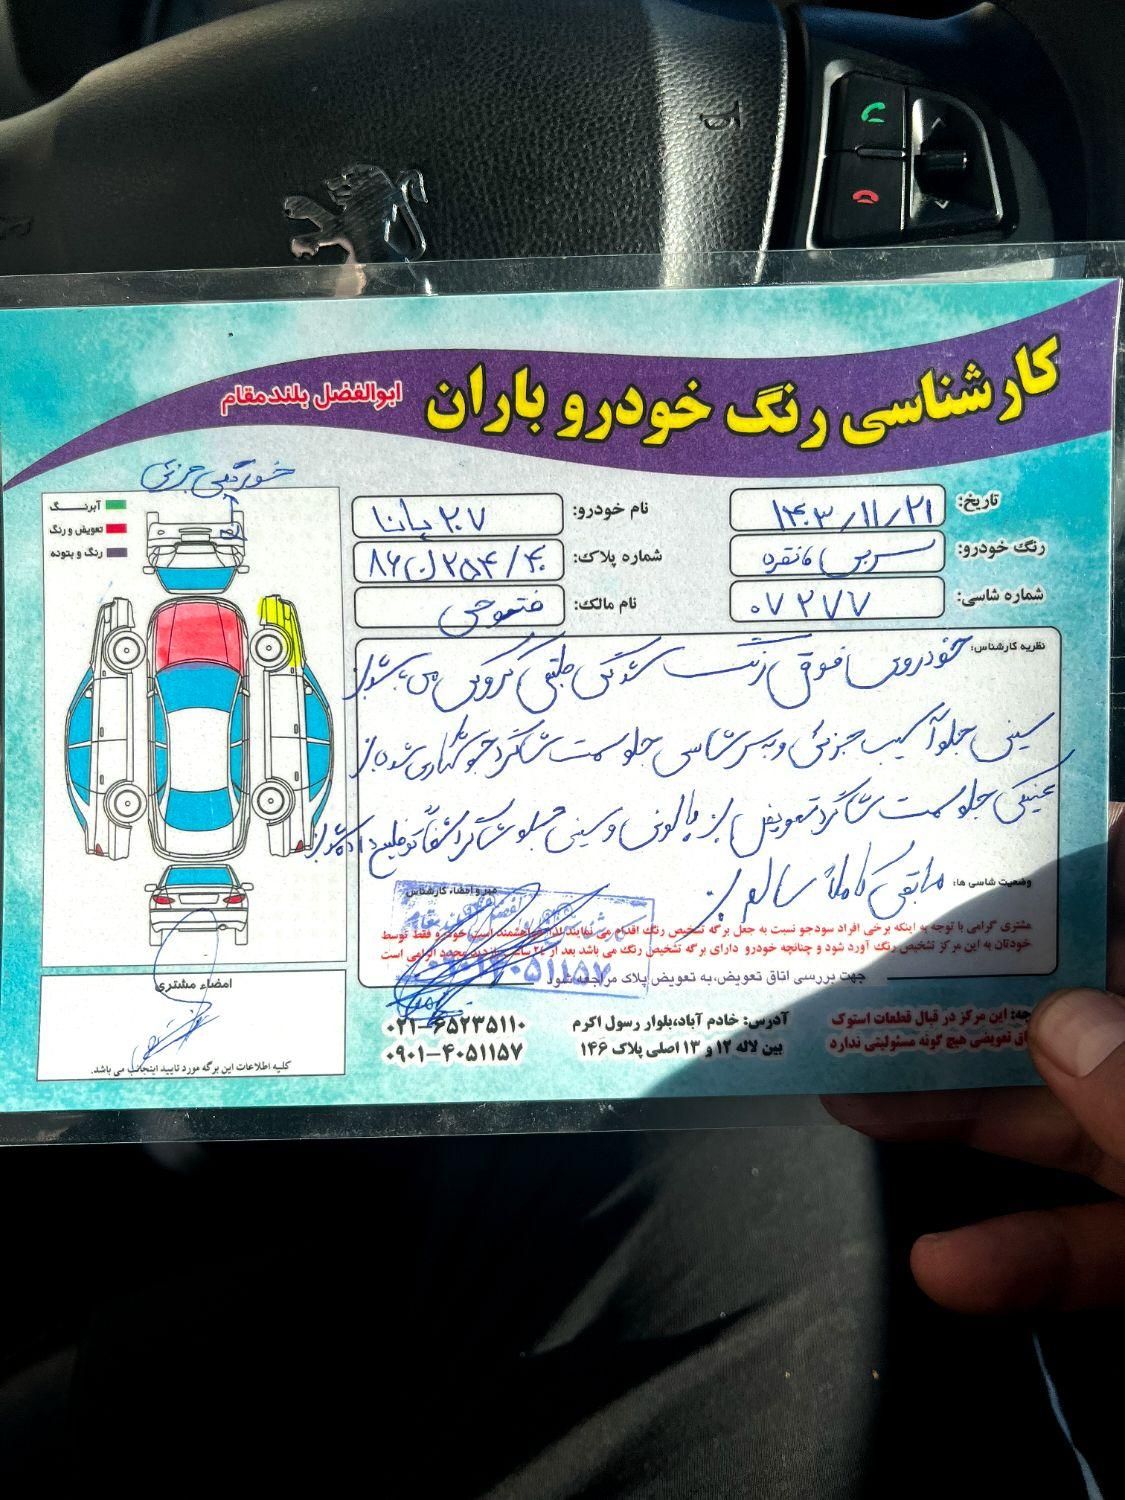 کارشناسی رنگ خودرو باران
ابوالفضل بلندمقام
تاریخ: ۱۴۰۳/۱۱/۲۱
نام خودرو: ۲۰۷ پانا
رنگ خودرو: نقره
شماره پلاک: ۸۶ ل ۲۵۴/۴۰
شماره شاسی: ۰۷۲۷۷
نام مالک: فتوحی
خوردگی جزئی
آبرنگ
تعویض و رنگ
رنگ و بتونه
نظریه کارشناس: خودروی فوق رنگ شدگی طبق کروکی می باشد
سینی جلو آسیب جزئی و سرشاسی جلو سمت شاگرد
جلو سمت شاگرد تعویض و سینی جلو
وضعیت شاسی ها: مابقی کاملاً سالم
مهر و امضاء کارشناس
مشتری گرامی با توجه به اینکه برخی افراد سودجو نسبت به جعل برگه تشخیص رنگ اقدام می نمایند لذا خواهشمند است خودرو فقط توسط
خودتان به این مرکز تشخیص رنگ آورد شود و چنانچه خودرو دارای برگه تشخیص رنگ می باشد بعد از ۲۴ ساعت بازدید مجدد الزامی است
جهت بررسی اتاق تعویض، به تعویض پلاک مراجعه شود
امضاء مشتری
کلیه اطلاعات این برگه مورد تایید اینجانب می باشد.
این مرکز در قبال قطعات استوک
تعویضی هیچ گونه مسئولیتی ندارد
آدرس: خادم آباد،بلوار رسول اکرم
بین لاله ۱۲ و ۱۳ اصلی پلاک ۱۴۶
۰۲۱-۶۵۲۳۵۱۱۰
۰۹۰۱-۴۰۵۱۱۵۷